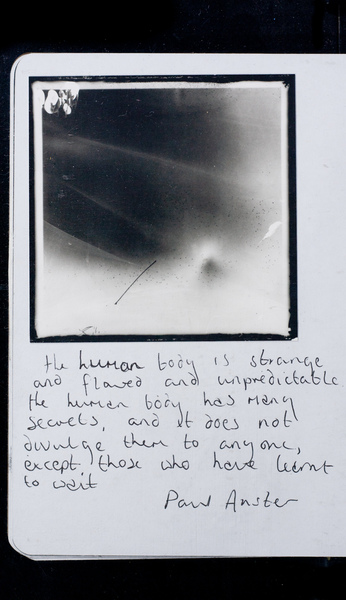 the human body is strange
and flawed and unpredictable
the human body has many
secrets, and it does not
divulge them to anyone,
except those who have learnt
to wait
Paul Auster